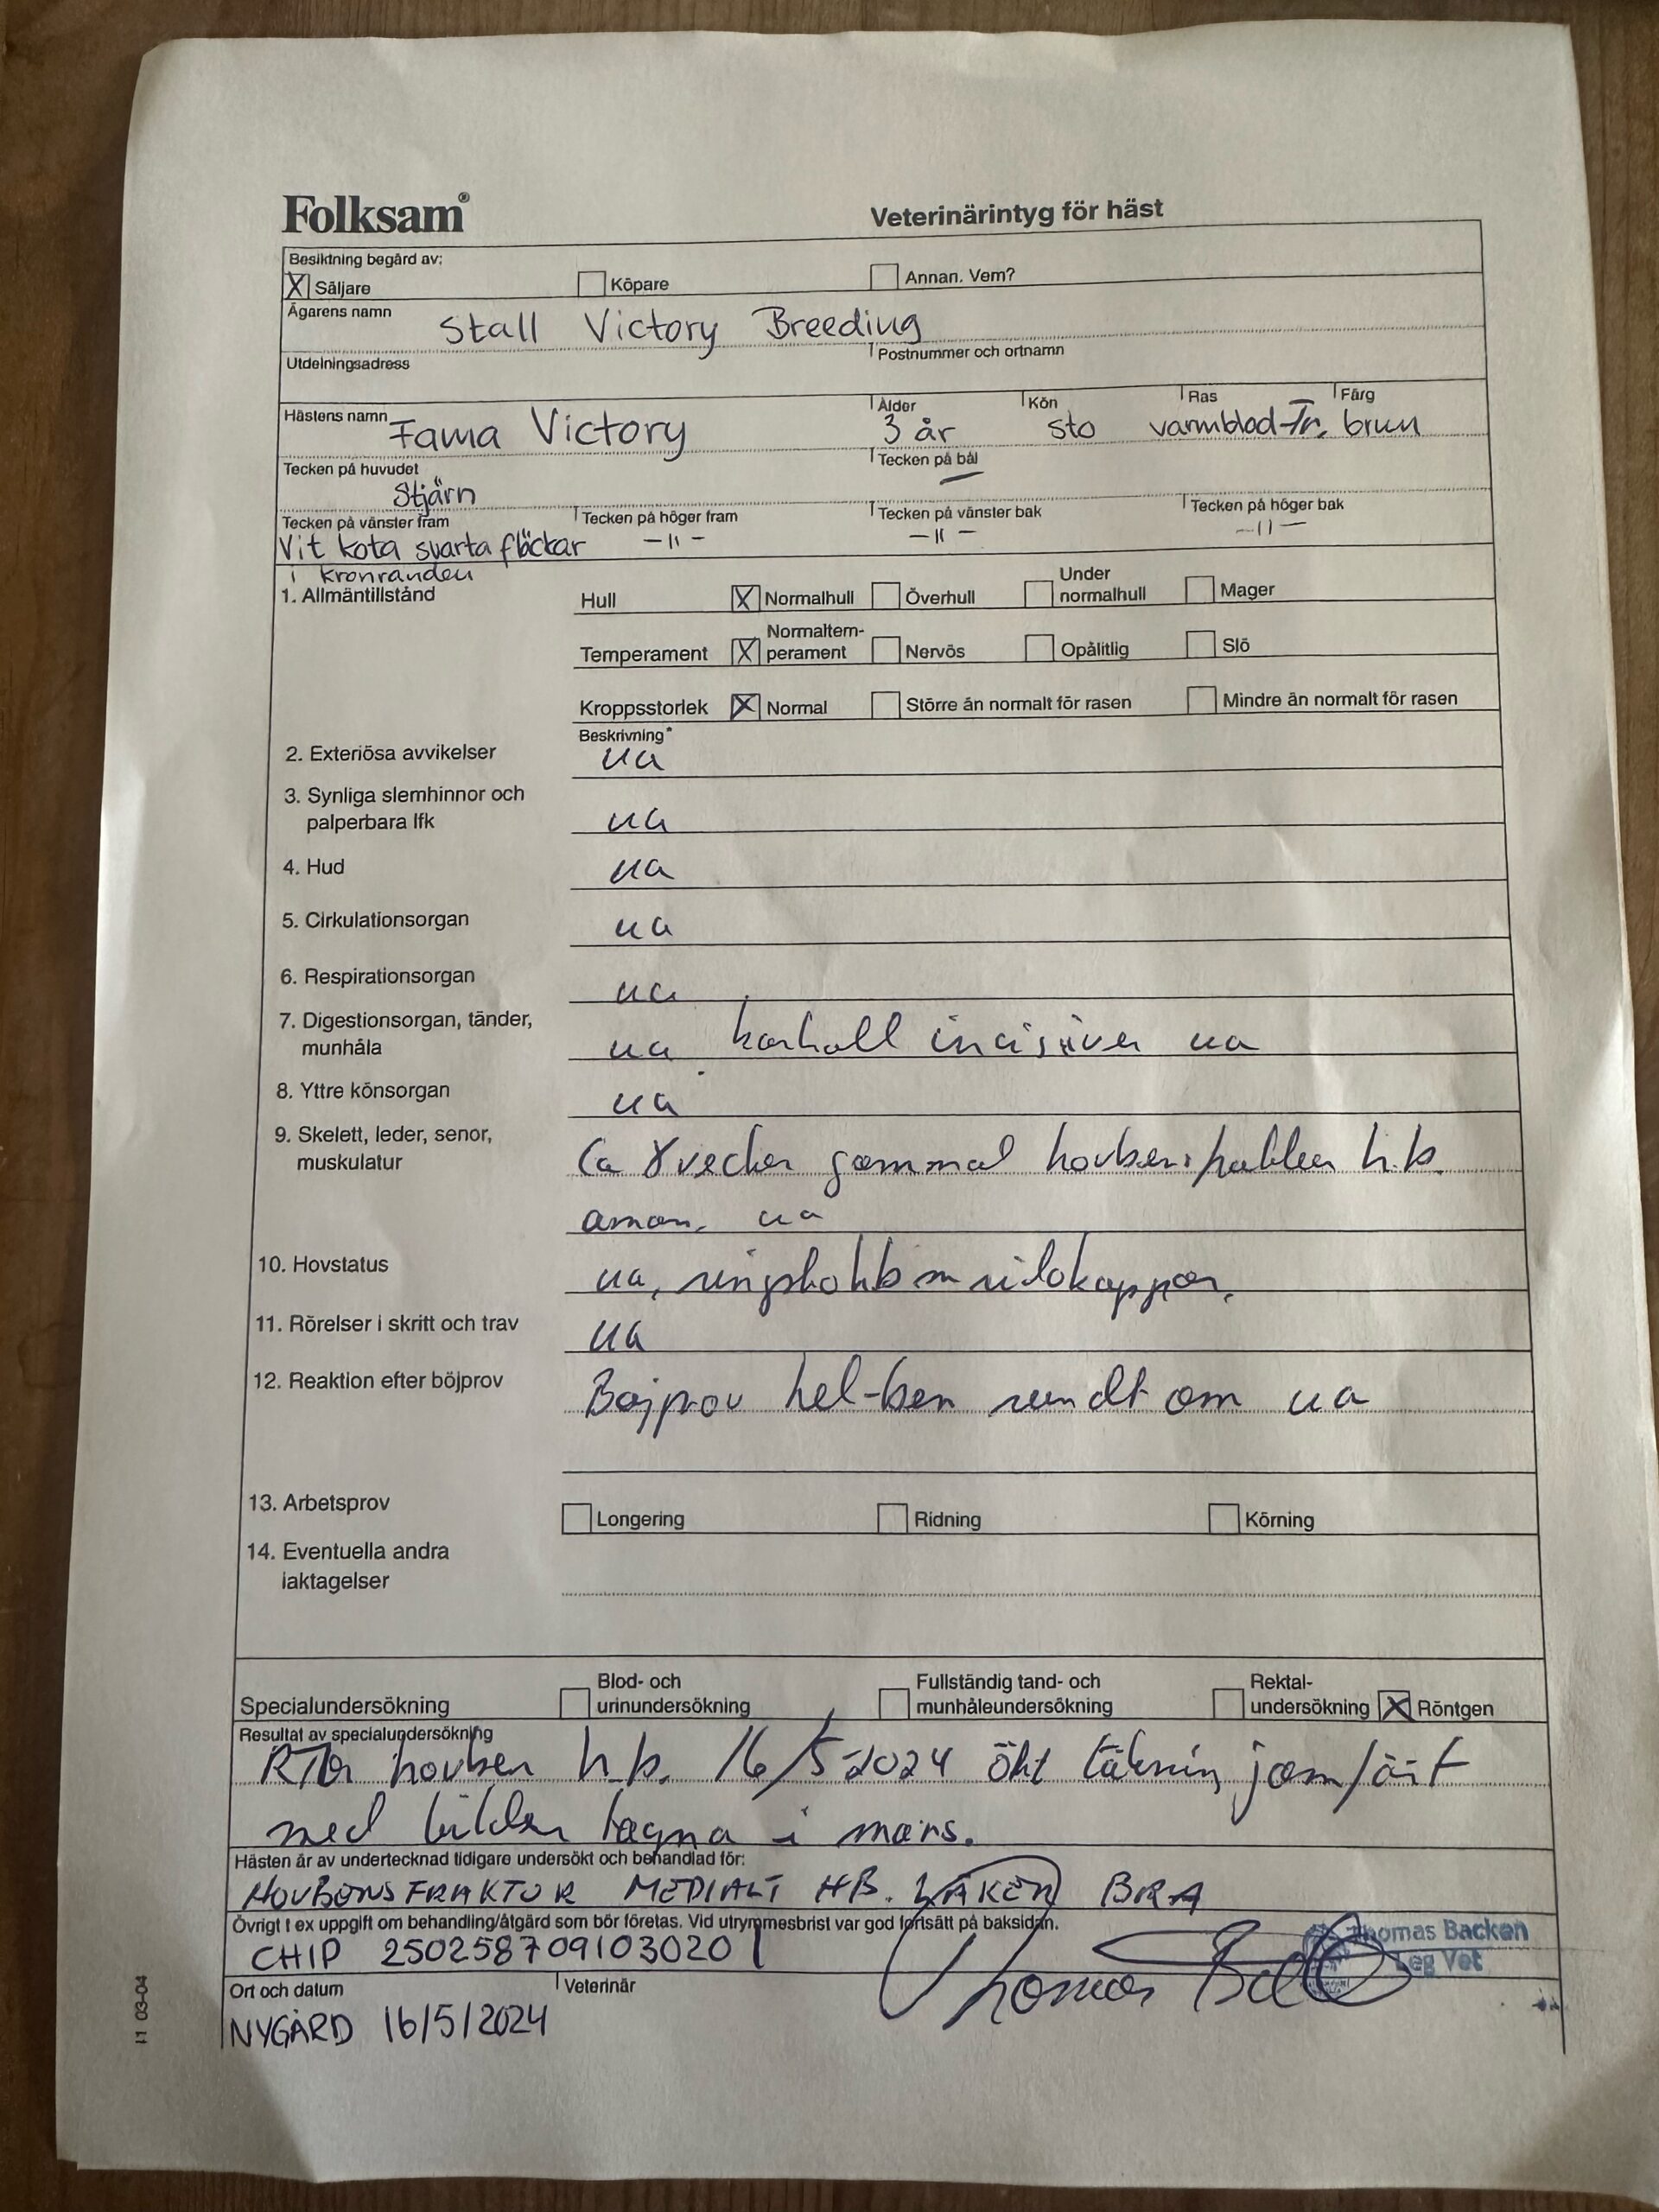 Folksam®
Veterinärintyg för häst
Besiktning begärd av:
X Säljare Köpare Annan. Vem?
Ägarens namn Stall Victory Breeding
Utdelningsadress Postnummer och ortnamn
Hästens namn Ålder Kön Ras Färg
Fama Victory 3 år sto varmblod-Tr. brun
Tecken på huvudet Tecken på bål
Stjärn —
Tecken på vänster fram Tecken på höger fram Tecken på vänster bak Tecken på höger bak
Vit kota svarta fläckar -11- -11- -11-
i kronranden
1. Allmäntillstånd Hull X Normalhull Överhull Under normalhull Mager
Temperament X Normaltem-perament Nervös Opålitlig Slö
Kroppsstorlek X Normal Större än normalt för rasen Mindre än normalt för rasen
Beskrivning*
2. Exteriösa avvikelser ua
3. Synliga slemhinnor och
palperbara lfk ua
4. Hud ua
5. Cirkulationsorgan ua
6. Respirationsorgan ua
7. Digestionsorgan, tänder,
munhåla ua incisiver ua
8. Yttre könsorgan ua
9. Skelett, leder, senor,
muskulatur Ca veckor gammal h.b.
ua
10. Hovstatus ua,
11. Rörelser i skritt och trav ua
12. Reaktion efter böjprov Böjprov hel-ben rundt om ua
13. Arbetsprov Longering Ridning Körning
14. Eventuella andra
iakttagelser
Specialundersökning Blod- och urinundersökning Fullständig tand- och munhåleundersökning Rektal-undersökning X Röntgen
Resultat av specialundersökning
hovben h.b. 16/5-2024 ökt jämfört
med bilder tagna i mars.
Hästen är av undertecknad tidigare undersökt och behandlad för:
HOVBENSFRAKTUR MEDIALT HB. LÄKER BRA
Övrigt t ex uppgift om behandling/åtgärd som bör företas. Vid utrymmesbrist var god fortsätt på baksidan.
CHIP 250258709103020
Thomas Backen
Leg Vet
Ort och datum Veterinär
NYGÅRD 16/5/2024
11 03-04